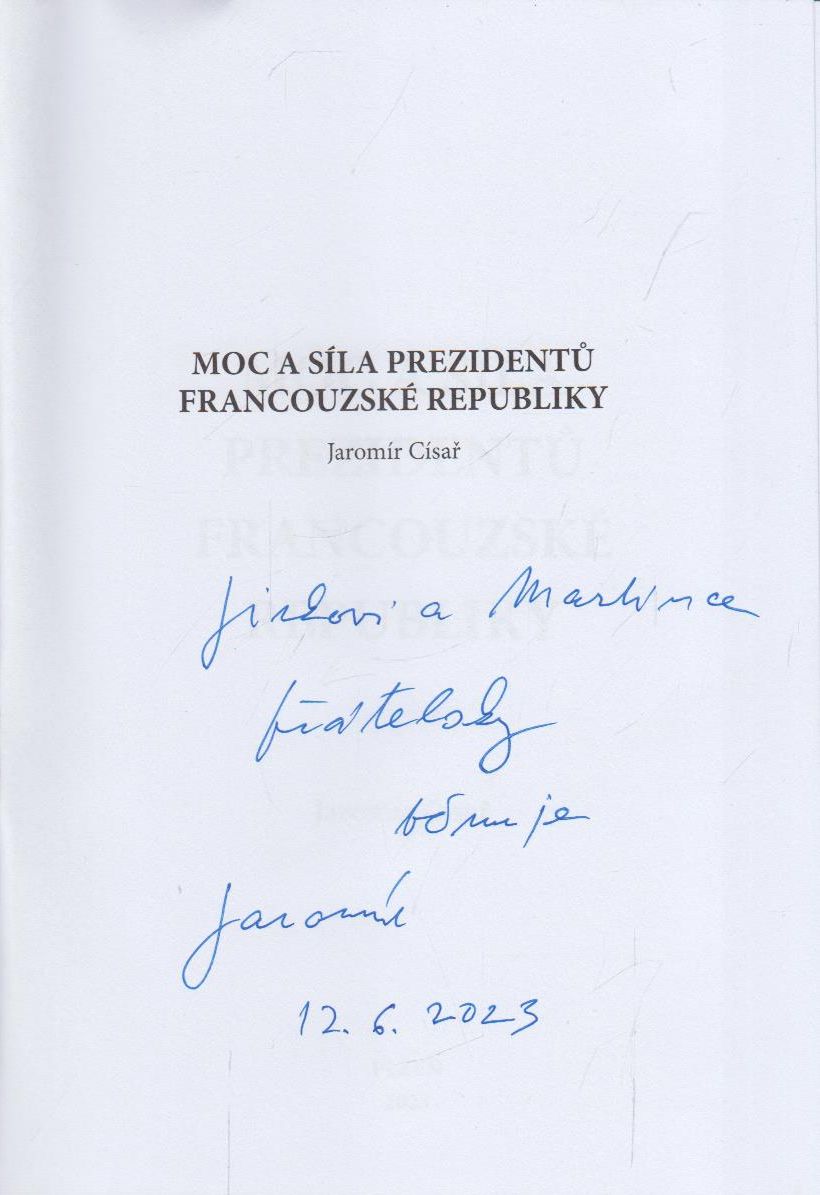 MOC A SÍLA PREZIDENTŮ
FRANCOUZSKÉ REPUBLIKY
Jaromír Císař
Jirkovi a Martince
přátelsky
věnuje
Jaromír
12. 6. 2023